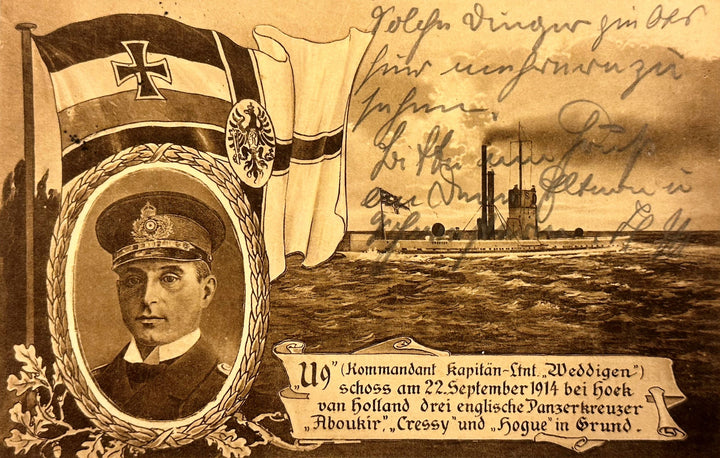 Solche Dinger gibt es
hier mehrere zu
sehen.
Gruß
Eltern u
„U9" (Kommandant Kapitän-Ltnt. „Weddigen")
schoss am 22. September 1914 bei Hoek
van Holland drei englische Panzerkreuzer
„Aboukir", „Cressy" und „Hogue" in Grund.